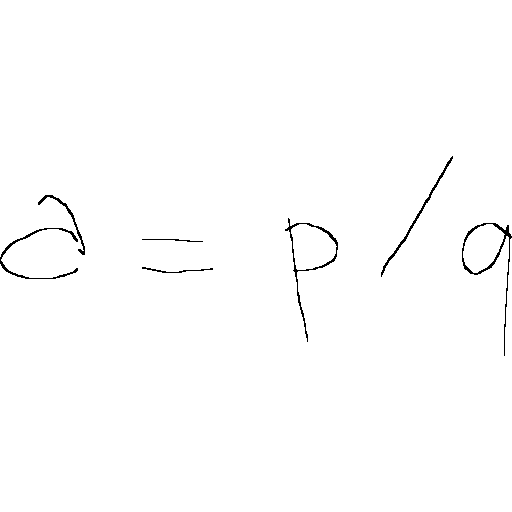 a = p / q